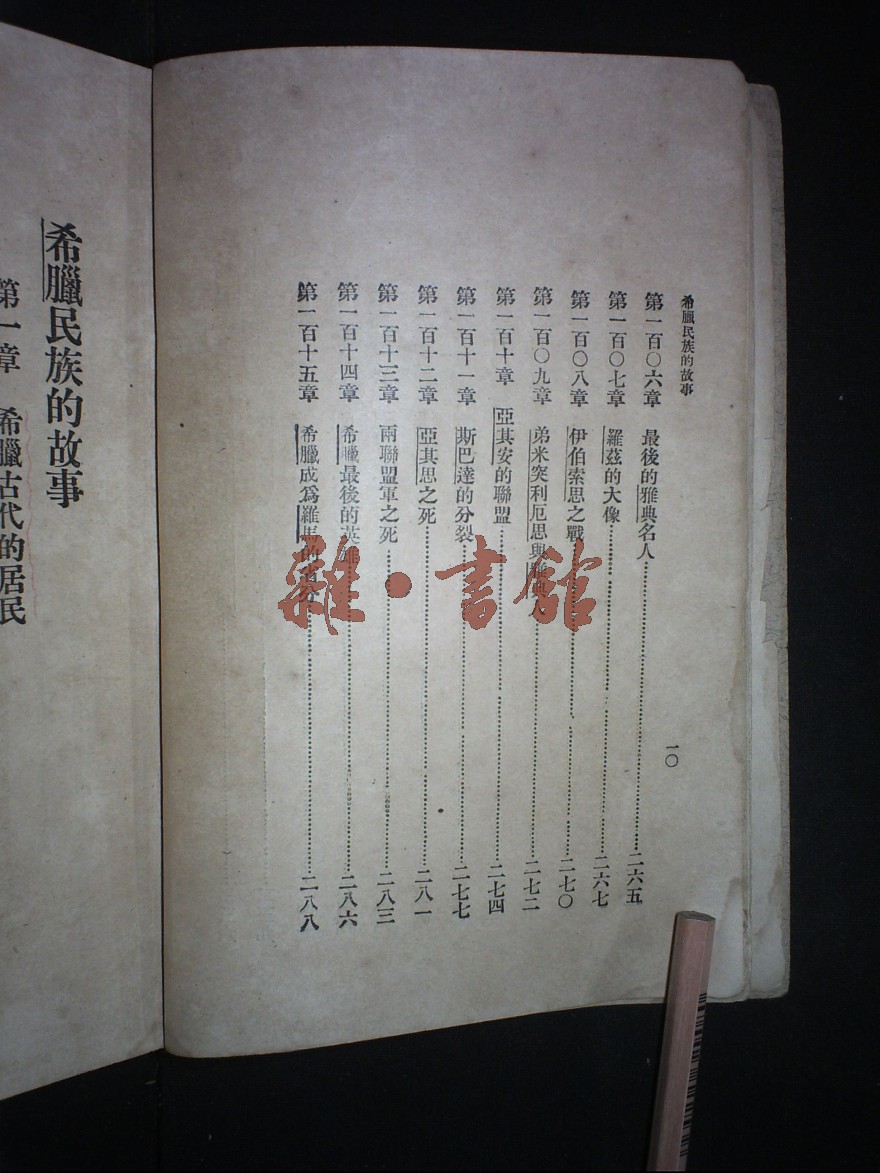 希臘民族的故事
第一百〇六章 最後的雅典名人……二六五
第一百〇七章 羅茲的大像……二六七
第一百〇八章 伊伯索思之戰……二七〇
第一百〇九章 弟米突利厄思與雅典人……二七二
第一百十章 亞其安的聯盟……二七四
第一百十一章 斯巴達的分裂……二七七
第一百十二章 亞其思之死……二八一
第一百十三章 兩聯盟軍之死……二八三
第一百十四章 希臘最後的英雄……二八六
第一百十五章 希臘成爲羅馬的省分……二八八
一〇
希臘民族的故事
第一章 希臘古代的居民
雜·書館